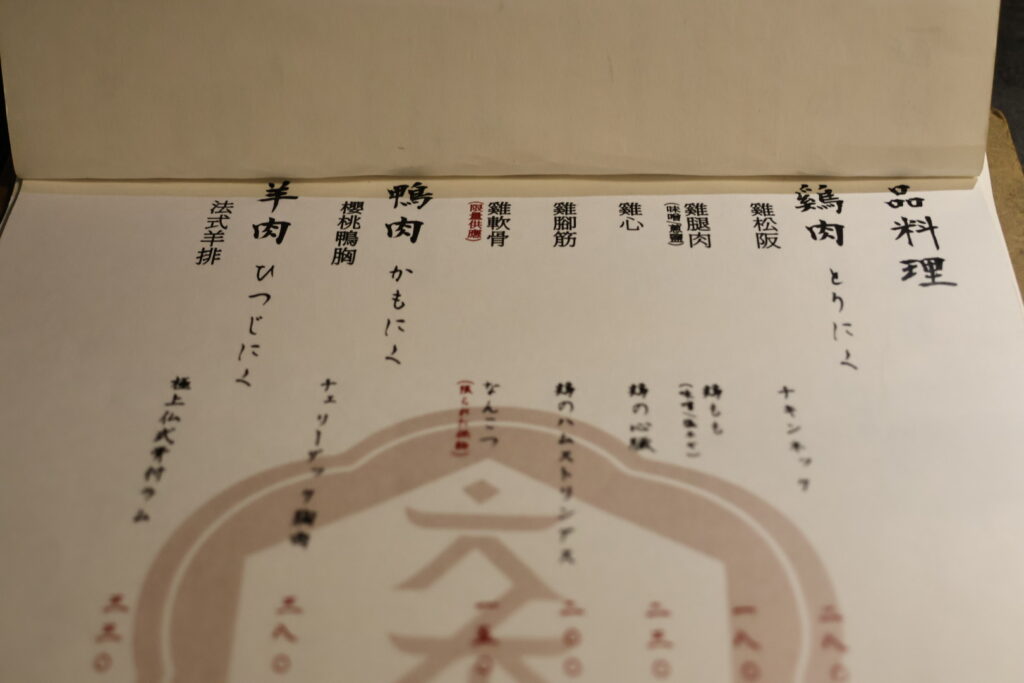 品料理
鷄肉 とりにく
雞松阪 チキンネック 二八〇
雞腿肉 鶏もも 一八〇
(味噌/蔥鹽)
雞心 鶏の心臓 二三〇
雞腳筋 鶏のハムストリングス 二〇〇
雞軟骨 なんこつ 一五〇
(限量供應)
鴨肉 かもにく
櫻桃鴨胸 チェリーダック胸肉 三八〇
羊肉 ひつじにく
法式羊排 極上仏式骨付ラム 三三〇